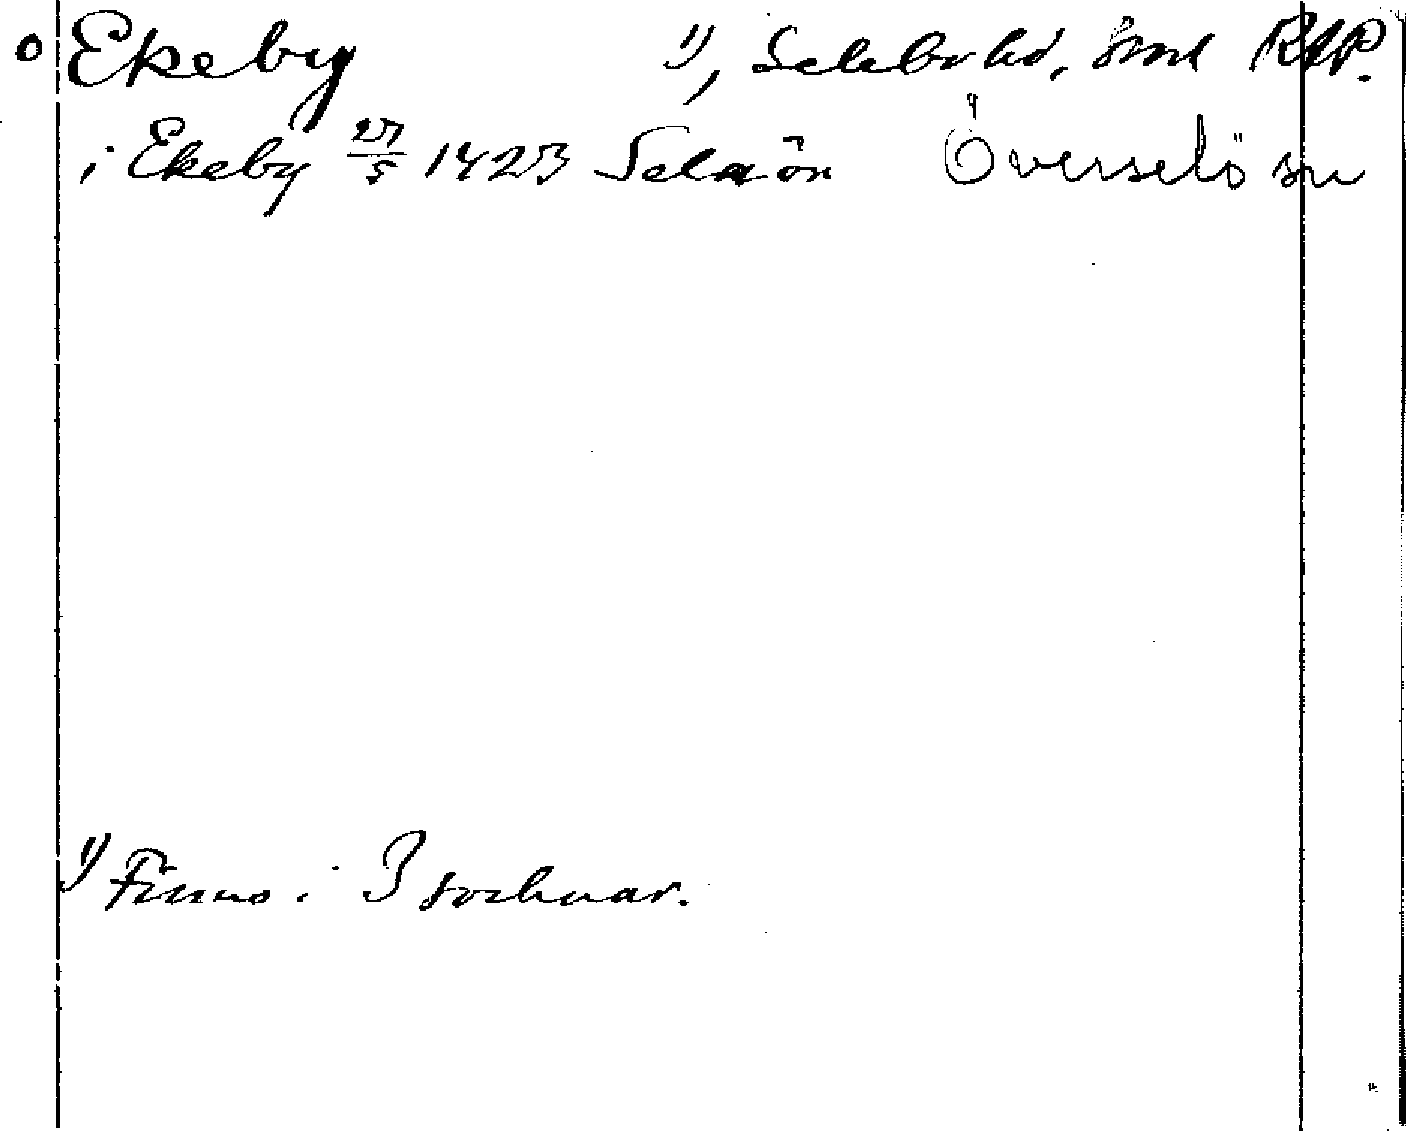 o Ekeby 1), Selebo hd, Srml RAP.
i Ekeby 27/5 1423 Selaön Överselö sn
1) Finns i 3 socknar.